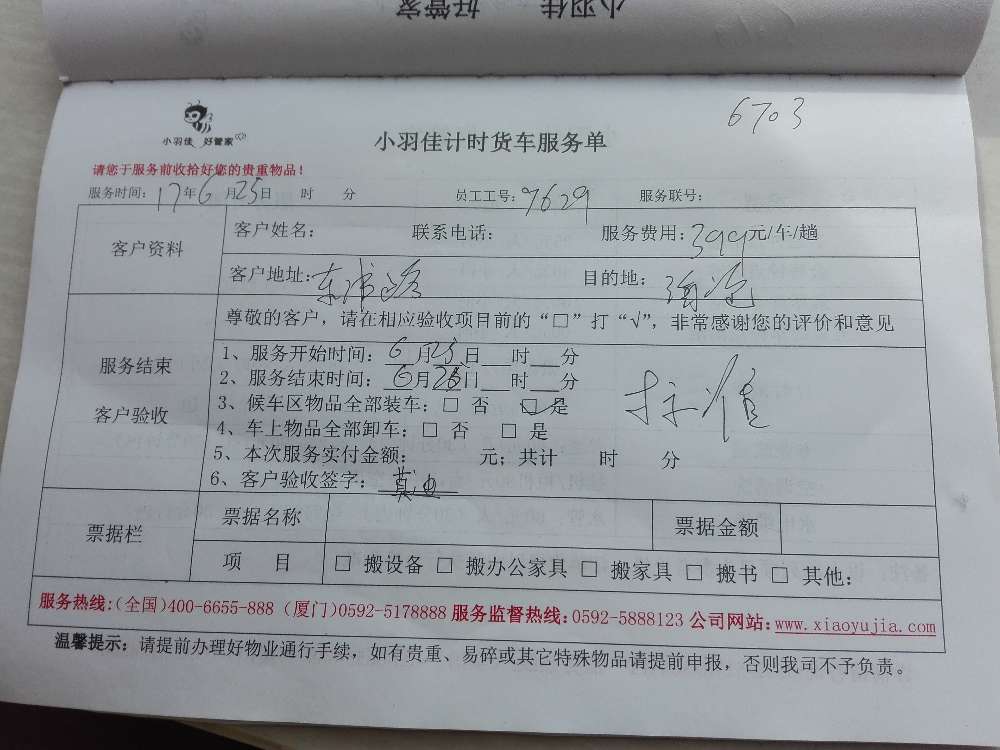 小羽佳 好管家
6703
小羽佳 好管家
小羽佳计时货车服务单
请您于服务前收拾好您的贵重物品！
服务时间：17年6月25日 时 分 员工工号：9629 服务联号：
客户资料 客户姓名： 联系电话： 服务费用：399元/车/趟
客户地址：东浦路 目的地：海沧
尊敬的客户，请在相应验收项目前的“□”打“√”，非常感谢您的评价和意见
服务结束
客户验收
1、服务开始时间：6月25日 时 分
2、服务结束时间：6月25日 时 分
3、候车区物品全部装车：□ 否 □ 是
4、车上物品全部卸车：□ 否 □ 是
5、本次服务实付金额： 元；共计 时 分
6、客户验收签字：
票据栏 票据名称 票据金额
项 目 □ 搬设备 □ 搬办公家具 □ 搬家具 □ 搬书 □ 其他：
服务热线：（全国）400-6655-888（厦门）0592-5178888 服务监督热线：0592-5888123 公司网站：www.xiaoyujia.com
温馨提示：请提前办理好物业通行手续，如有贵重、易碎或其它特殊物品请提前申报，否则我司不予负责。